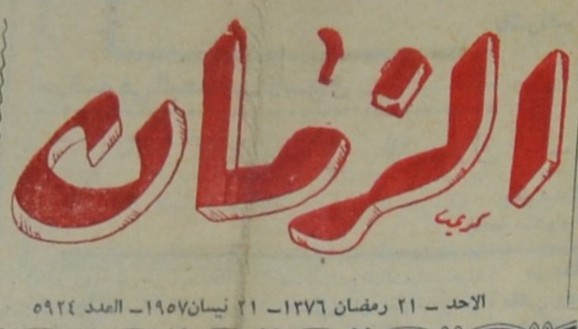 الزمان
الاحد - ٢١ رمضان ١٣٧٦ - ٢١ نيسان ١٩٥٧ - العدد ٥٩٢٤